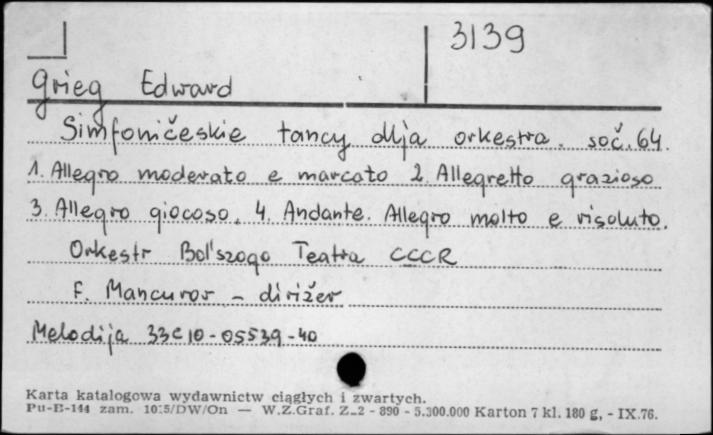 3139
Grieg Edward
Simfoničeskie tancy dlja orkestra. soč. 64.
1. Allegro moderato e marcato 2. Allegretto grazioso
3. Allegro giocoso. 4. Andante. Allegro molto e risoluto.
Orkestr Bol'szogo Teatra CCCR
F. Mancurov - dirižer
Melodija 33C10-05539-40
Karta katalogowa wydawnictw ciągłych i zwartych.
Pu-B-144 zam. 1015/DW/On — W.Z.Graf. Z-2 - 890 - 5.300.000 Karton 7 kl. 180 g, - IX.76.